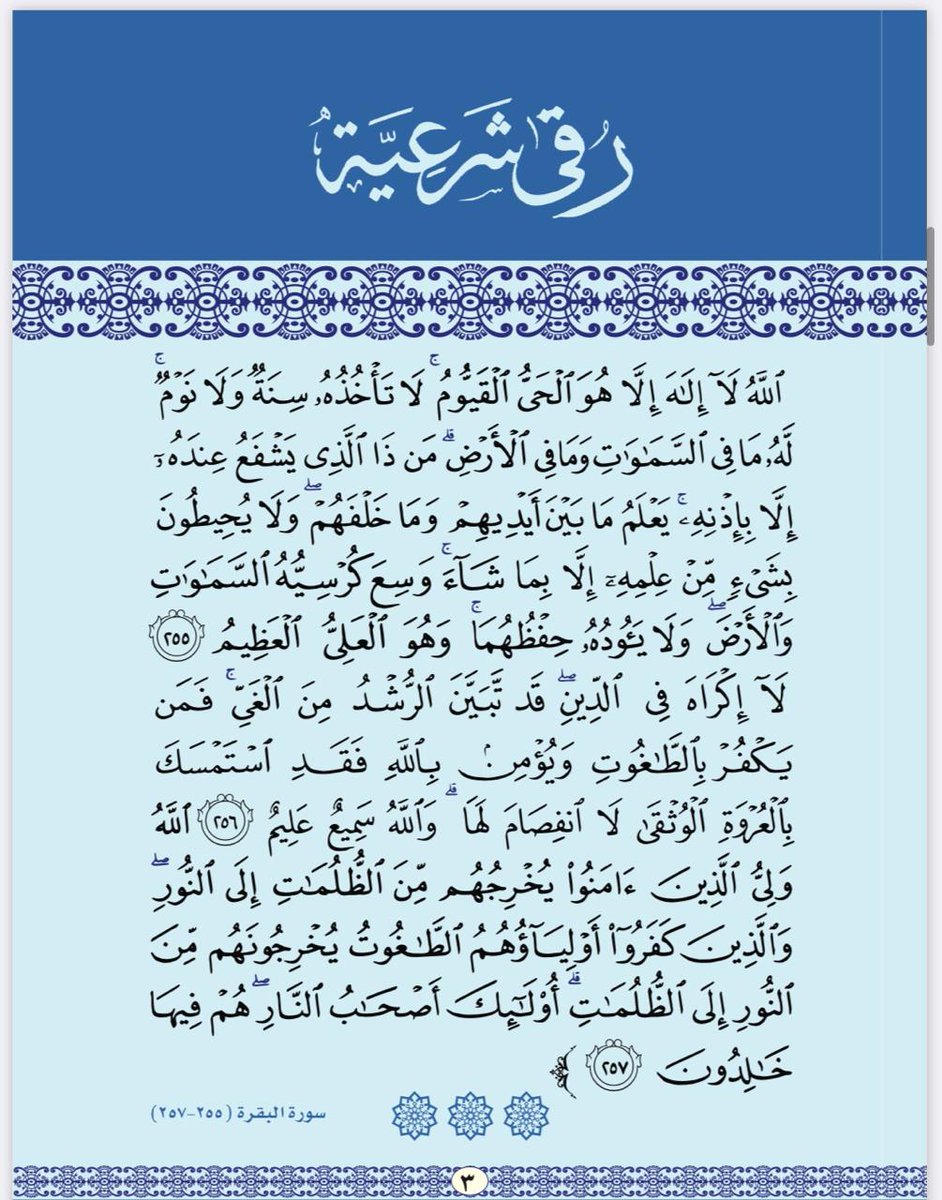 رُقىً شَرْعِيَّةٌ
ٱللَّهُ لَآ إِلَٰهَ إِلَّا هُوَ ٱلْحَىُّ ٱلْقَيُّومُ ۚ لَا تَأْخُذُهُۥ سِنَةٌ وَلَا نَوْمٌ ۚ
لَّهُۥ مَا فِى ٱلسَّمَٰوَٰتِ وَمَا فِى ٱلْأَرْضِ ۗ مَن ذَا ٱلَّذِى يَشْفَعُ عِندَهُۥٓ
إِلَّا بِإِذْنِهِۦ ۚ يَعْلَمُ مَا بَيْنَ أَيْدِيهِمْ وَمَا خَلْفَهُمْ ۖ وَلَا يُحِيطُونَ
بِشَىْءٍ مِّنْ عِلْمِهِۦٓ إِلَّا بِمَا شَآءَ ۚ وَسِعَ كُرْسِيُّهُ ٱلسَّمَٰوَٰتِ
وَٱلْأَرْضَ ۖ وَلَا يَـُٔودُهُۥ حِفْظُهُمَا ۚ وَهُوَ ٱلْعَلِىُّ ٱلْعَظِيمُ ٢٥٥
لَآ إِكْرَاهَ فِى ٱلدِّينِ ۖ قَد تَّبَيَّنَ ٱلرُّشْدُ مِنَ ٱلْغَىِّ ۚ فَمَن
يَكْفُرْ بِٱلطَّٰغُوتِ وَيُؤْمِنۢ بِٱللَّهِ فَقَدِ ٱسْتَمْسَكَ
بِٱلْعُرْوَةِ ٱلْوُثْقَىٰ لَا ٱنفِصَامَ لَهَا ۗ وَٱللَّهُ سَمِيعٌ عَلِيمٌ ٢٥٦ ٱللَّهُ
وَلِىُّ ٱلَّذِينَ ءَامَنُوا۟ يُخْرِجُهُم مِّنَ ٱلظُّلُمَٰتِ إِلَى ٱلنُّورِ ۖ
وَٱلَّذِينَ كَفَرُوٓا۟ أَوْلِيَآؤُهُمُ ٱلطَّٰغُوتُ يُخْرِجُونَهُم مِّنَ
ٱلنُّورِ إِلَى ٱلظُّلُمَٰتِ ۗ أُو۟لَٰٓئِكَ أَصْحَٰبُ ٱلنَّارِ ۖ هُمْ فِيهَا
خَٰلِدُونَ ٢٥٧ ﴾
سورة البقرة (٢٥٥-٢٥٧)
٣